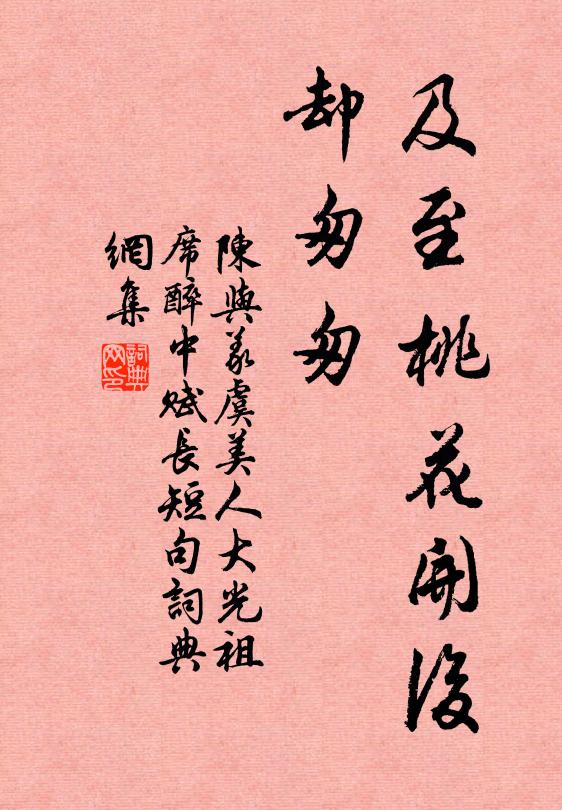 及至桃花開後
却匆匆
陳與義虞美人大光祖
席醉中賦長短句詞典
網集
詞典
网印